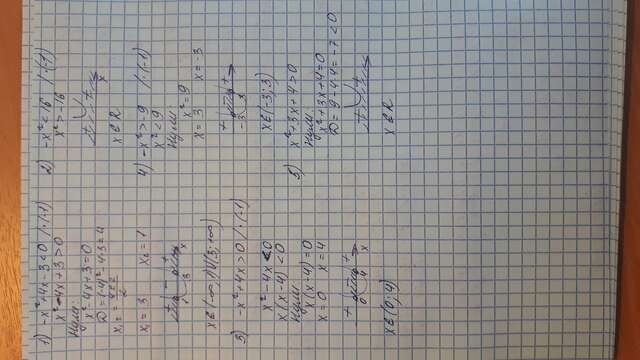 1) -x²+4x-3<0 /·(-1)
x²-4x+3>0
Нули:
x²-4x+3=0
D=(-4)²-4·3=4
x₁=(4±2)/2
x₁=3 x₂=1
+ - +
1 3 x
x∈(-∞;1)∪(3;+∞)
3) -x²+4x>0 /·(-1)
x²-4x<0
x(x-4)<0
Нули
x(x-4)=0
x=0 x=4
+ - +
0 4 x
x∈(0;4)
2) -x²<16 /·(-1)
x²>-16
+ +
x
x∈R
4) -x²>-9 /·(-1)
x²<9
Нули:
x²=9
x=3 x=-3
+ - +
-3 3
x∈(-3;3)
5) x²+3x+4>0
Нули
x²+3x+4=0
D=9-4·4=-7<0
+ +
x∈R